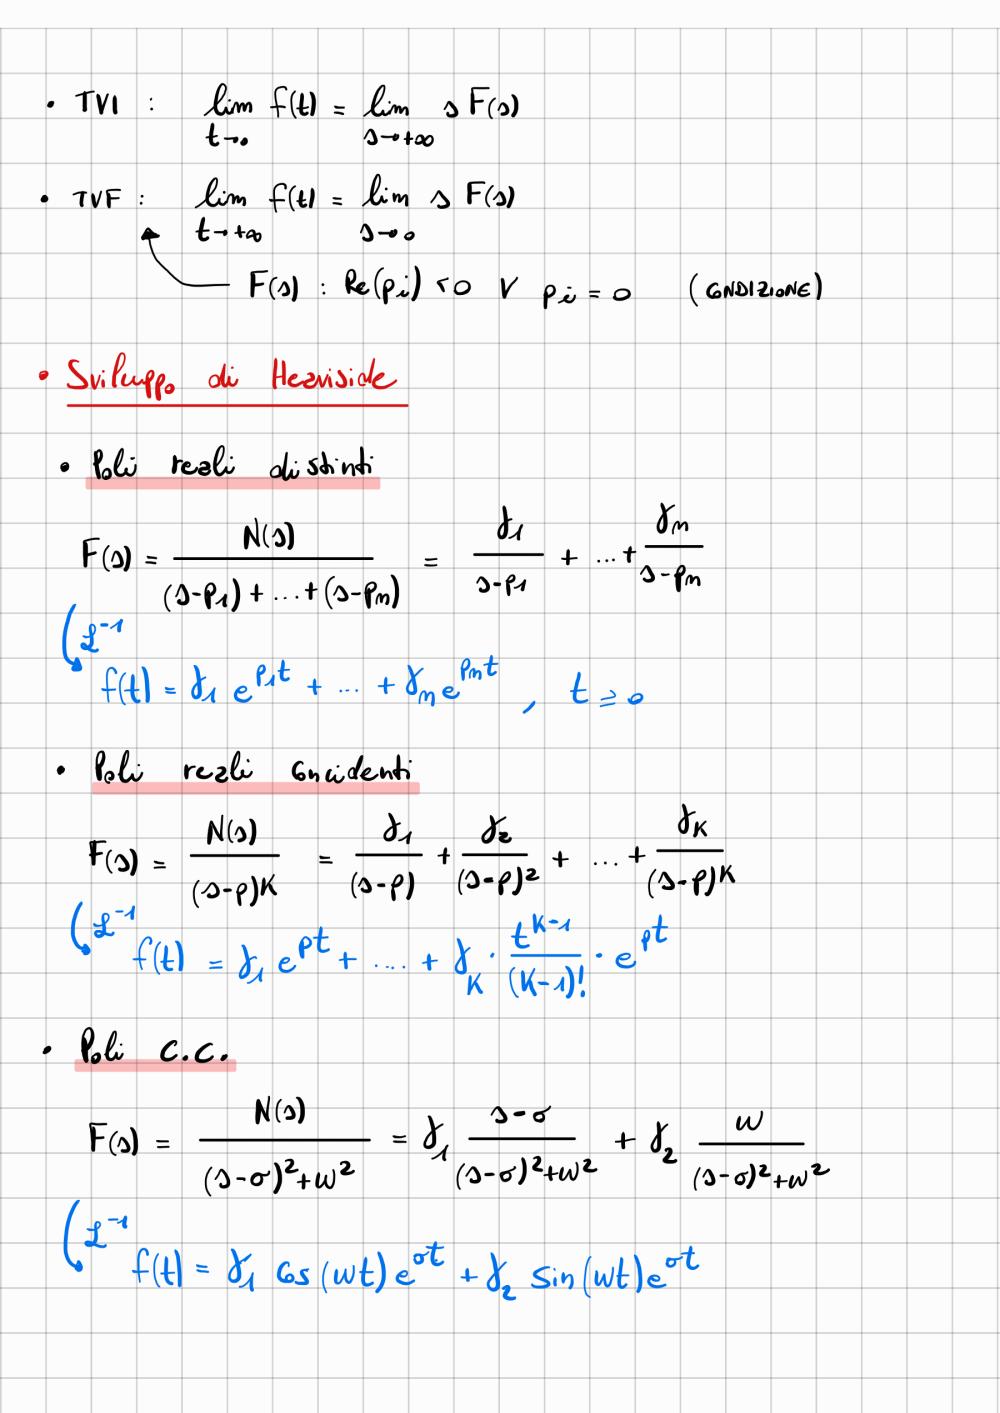 • TVI : lim f(t) = lim s F(s)
t→0 s→+∞
• TVF : lim f(t) = lim s F(s)
t→+∞ s→0
F(s) : Re(pi) <0 V pi = 0 (CONDIZIONE)
• Sviluppo di Heaviside
• Poli reali distinti
F(s) = N(s) / (s-p1) + ... + (s-pm) = γ1 / s-p1 + ... + γm / s-pm
L^-1
f(t) = γ1 e^p1t + ... + γm e^pmt , t ≥ 0
• Poli reali coincidenti
F(s) = N(s) / (s-p)^K = γ1 / (s-p) + γ2 / (s-p)^2 + ... + γK / (s-p)^K
L^-1
f(t) = γ1 e^pt + .... + γK · t^K-1 / (K-1)! · e^pt
• Poli C.C.
F(s) = N(s) / (s-σ)^2+ω^2 = γ1 s-σ / (s-σ)^2+ω^2 + γ2 ω / (s-σ)^2+ω^2
L^-1
f(t) = γ1 cos (ωt) e^σt + γ2 sin (ωt) e^σt